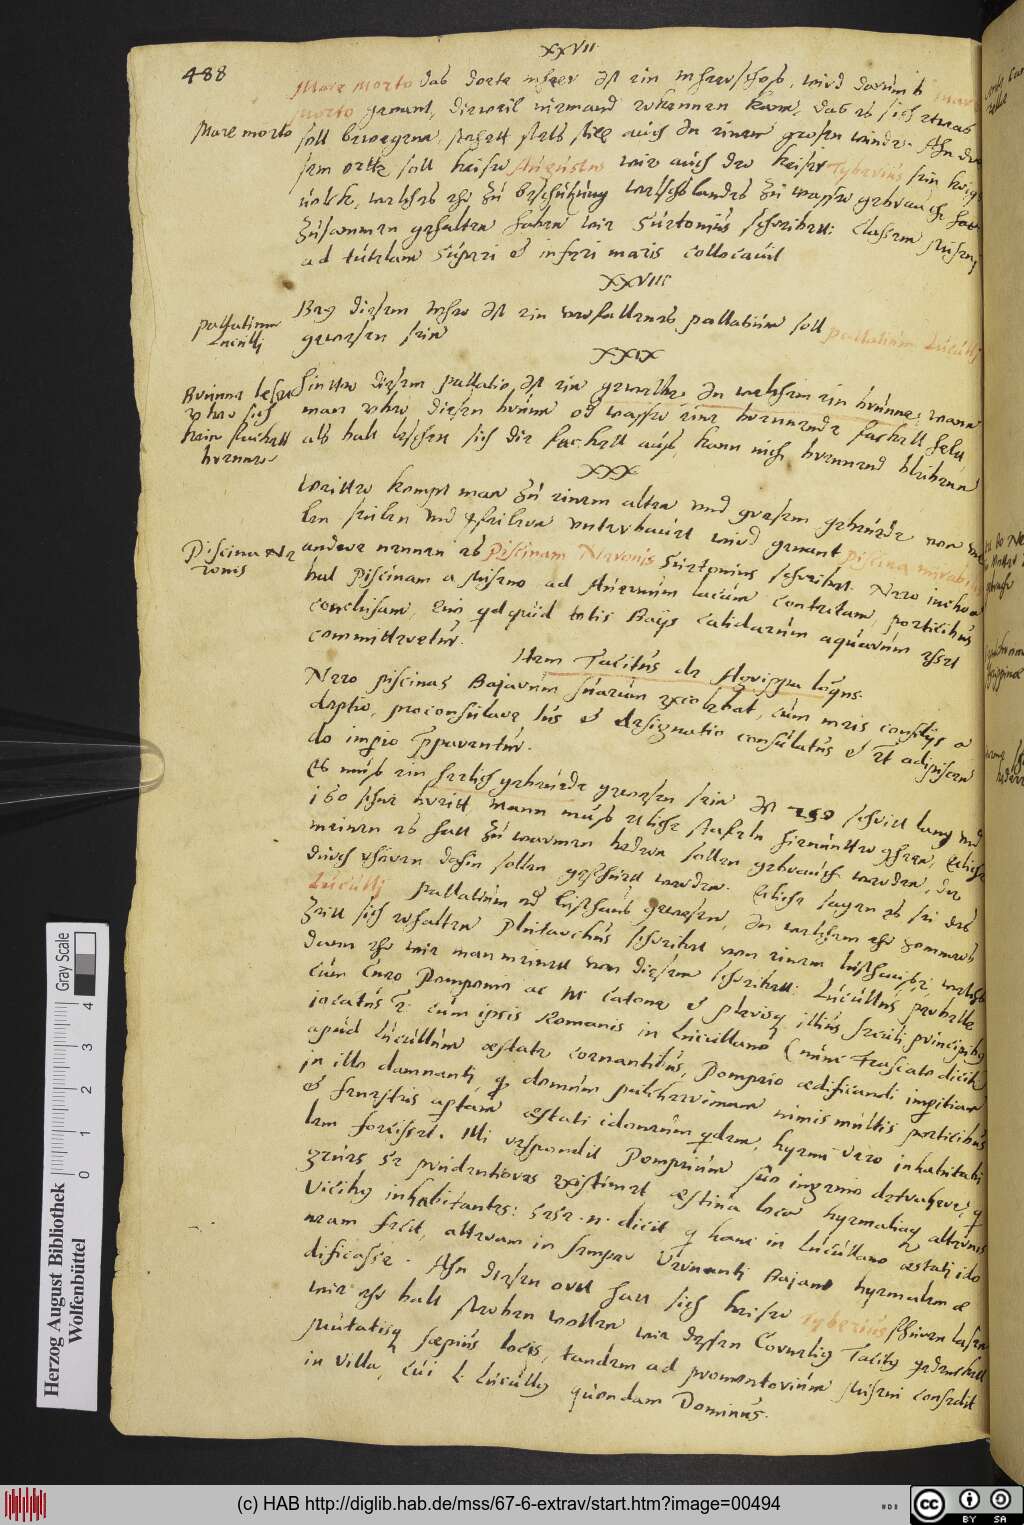 XXVII
488
Mare Morto das dorte mher ist ein mherschoß, wird darumb mare
morto genant, dieweil niemand erkennen kan, das es sich etwas
Mare morto
soll bewegen, stehett stets still auch in einem grosen winde. Ahn die
sem ortte soll keiser Augustus wie auch der keiser Tyberius sein krigs
volck, welches ehr zu beschützung Welschlandes zu wasser gebrauch
zusammen gehalten haben wie Suetonius schreibett: Classem Miseni
ad tutelam superi et inferi maris collocavit
XXVIII
Bey diesem mher ist ein verfallenes pallatium soll pallatium Luculli
pallatium
Luculli
gewesen sein
XXIX
Hintter diesem pallatio ist ein gewelbe, in welchem ein brunne, wann
Brunne lesche
man uber diesen brunne od wasser eine brennende fackell helt,
uber sich
kein fackell
brenner
als balt leschet sich die fackell aus, kann nich brennend bleiben
XXX
Weitter kompt man zu einem alten und grosem gebeude von
len seulen und pfeilern unterbauet wird genant piscina mirabilis
Piscina Ne
ronis
andere nennen es Piscinam Neronis Suetonius schreibet. Nero inchoa
bat Piscinam a Miseno ad Avernum lacum contectam, porticibus
conclusam, cui qdquid totis Bajis calidarum aquarum esset
committeretur.
Item Tacitus de Agrippa loqns.
Nero piscinas Bajarum suarum excolebat, cum meis consilijs a
deptio, proconsulare ius et designatio consulatus et ut adipiscen
do imperio pparentur.
Es mus ein herlich gebeude gewesen sein ist 250 schritt lang und
160 schue breitt, mann mus etliche stafeln hienuntter gehen, etliche
meinen es hatt zu warmen bedern sollen gebrauch werden, die
durch rhören dahin sollen gefhürett werden. Etliche sagen es sei des
Luculli pallatium od lusthaus gewesen, in welchem ehr sommers
zeitt sich erhalten Plutarchus schreibet von einem lusthause, welchs
dann ehr wie man meinett von diesem schreibett: Lucullus perbelle
cum Cnæo Pompeio ac M. Catone et plerisq illius seculi principibus
iocatus e: cum ipsis Romanis in Lucullano (nunc Frascato dicitur)
apud Lucullum æstate coenantibus, Pompeio ædificandi imperitiam
in illo damnanti, q domum pulcherrimam nimis multis porticibus
et fenestris aptam æstati idoneum qdem, hyemi vero inhabitabi
lem fecisset. Illi respondit Pompeium suo ingenio detrahere, q
grues se prudentiores existimet æstiva loca hyemaliaq alternis
vicibus inhabitantes: sese .n. dicit q hanc in Lucullano æstati ido
neam fecit, alteram in semper vernanti Bajano hyemalem æ
dificasse. Ahn diesen ortt hatt sich keiser Tyberius fhüren lasen
wie ehr balt sterben wollen wie dessen Cornelius Tacitus gedenckett
Mutatisq sæpius locis, tandem ad promontorium Miseni consedit
in villa, cui L. Lucullus quondam Dominus.
Herzog August Bibliothek
Wolfenbüttel
Gray Scale
0 1 2 3 4
(c) HAB http://diglib.hab.de/mss/67-6-extrav/start.htm?image=00494
HAB
cc BY SA